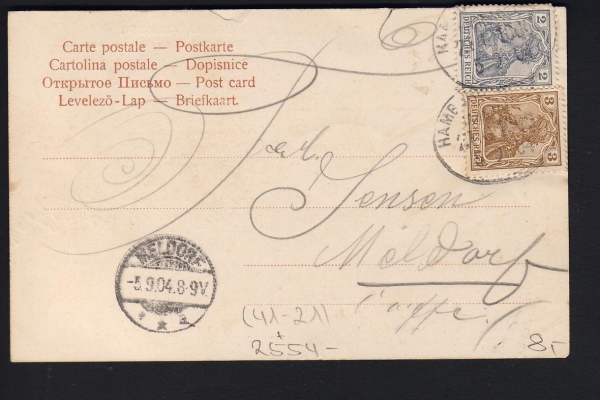 Carte postale — Postkarte
Cartolina postale — Dopisnice
Открытое Письмо — Post card
Levelező-Lap — Briefkaart.
2 2
DEUTSCHES REICH
HAMB
3 3
DEUTSCHES REICH
HAMB
Jensen
Meldorf
MELDORF
-5.9.04.8-9V.
* * a
(41-21)
+
2554-
8,-